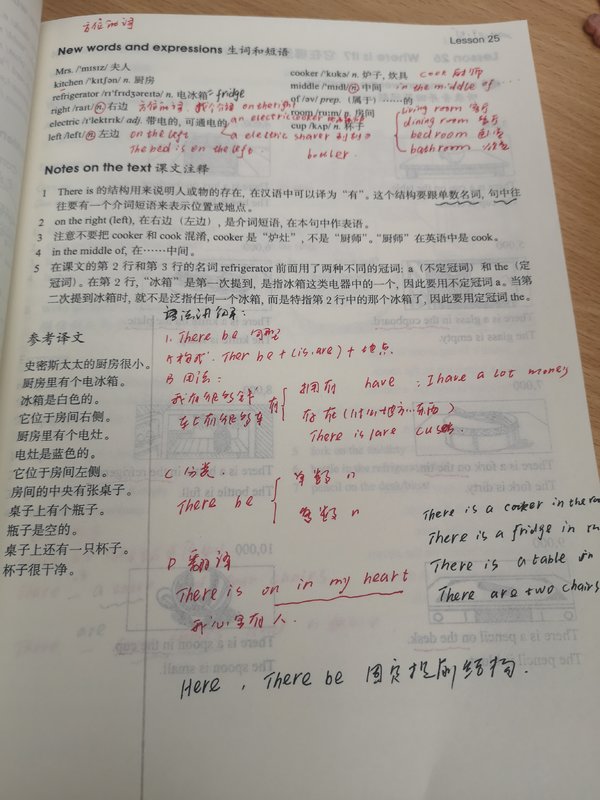 方位的词
Lesson 25
New words and expressions 生词和短语
Mrs. /'mɪsɪz/ 夫人
cooker /'kʊkə/ n. 炉子, 炊具 cook 厨师
kitchen /'kɪtʃən/ n. 厨房
middle /'mɪdl/ n. 中间 in the middle of
refrigerator /rɪ'frɪdʒəreɪtə/ n. 电冰箱 = fridge
of /əv/ prep. (属于) ……的
right /raɪt/ n. 右边 方位的词 on the right
room /ruːm/ n. 房间
living room 客厅
electric /ɪ'lektrɪk/ adj. 带电的, 可通电的 an electric cooker
cup /kʌp/ n. 杯子
dining room
left /left/ n. 左边 on the left
a electric shaver
bedroom
The bed is on the left.
bathroom
Notes on the text 课文注释
1 There is 的结构用来说明人或物的存在, 在汉语中可以译为“有”。这个结构要跟单数名词, 句中往
往要有一个介词短语来表示位置或地点。
2 on the right (left), 在右边（左边）, 是介词短语, 在本句中作表语。
3 注意不要把 cooker 和 cook 混淆, cooker 是“炉灶”, 不是“厨师”。“厨师”在英语中是 cook。
4 in the middle of, 在……中间。
5 在课文的第 2 行和第 3 行的名词 refrigerator 前面用了两种不同的冠词: a（不定冠词）和 the（定
冠词）。在第 2 行, “冰箱”是第一次提到, 是指冰箱这类电器中的一个, 因此要用不定冠词 a。当第
二次提到冰箱时, 就不是泛指任何一个冰箱, 而是特指第 2 行中的那个冰箱了, 因此要用定冠词 the。
参考译文
史密斯太太的厨房很小。
厨房里有个电冰箱。
冰箱是白色的。
它位于房间右侧。
厨房里有个电灶。
电灶是蓝色的。
它位于房间左侧。
房间的中央有张桌子。
桌子上有个瓶子。
瓶子是空的。
桌子上还有一只杯子。
杯子很干净。
1. There be 句型
A 构成: Ther be + (is.are) + 地点.
B 用法:
有
拥有 have : I have a lot money
存在
There is/are
C 分类.
There be
单数 n
复数 n
There is a cooker in the
There is a fridge in
There is a table in
There are two chairs
D 翻译
There is on in my heart
我心里有人.
Here , There be 固定 结构.